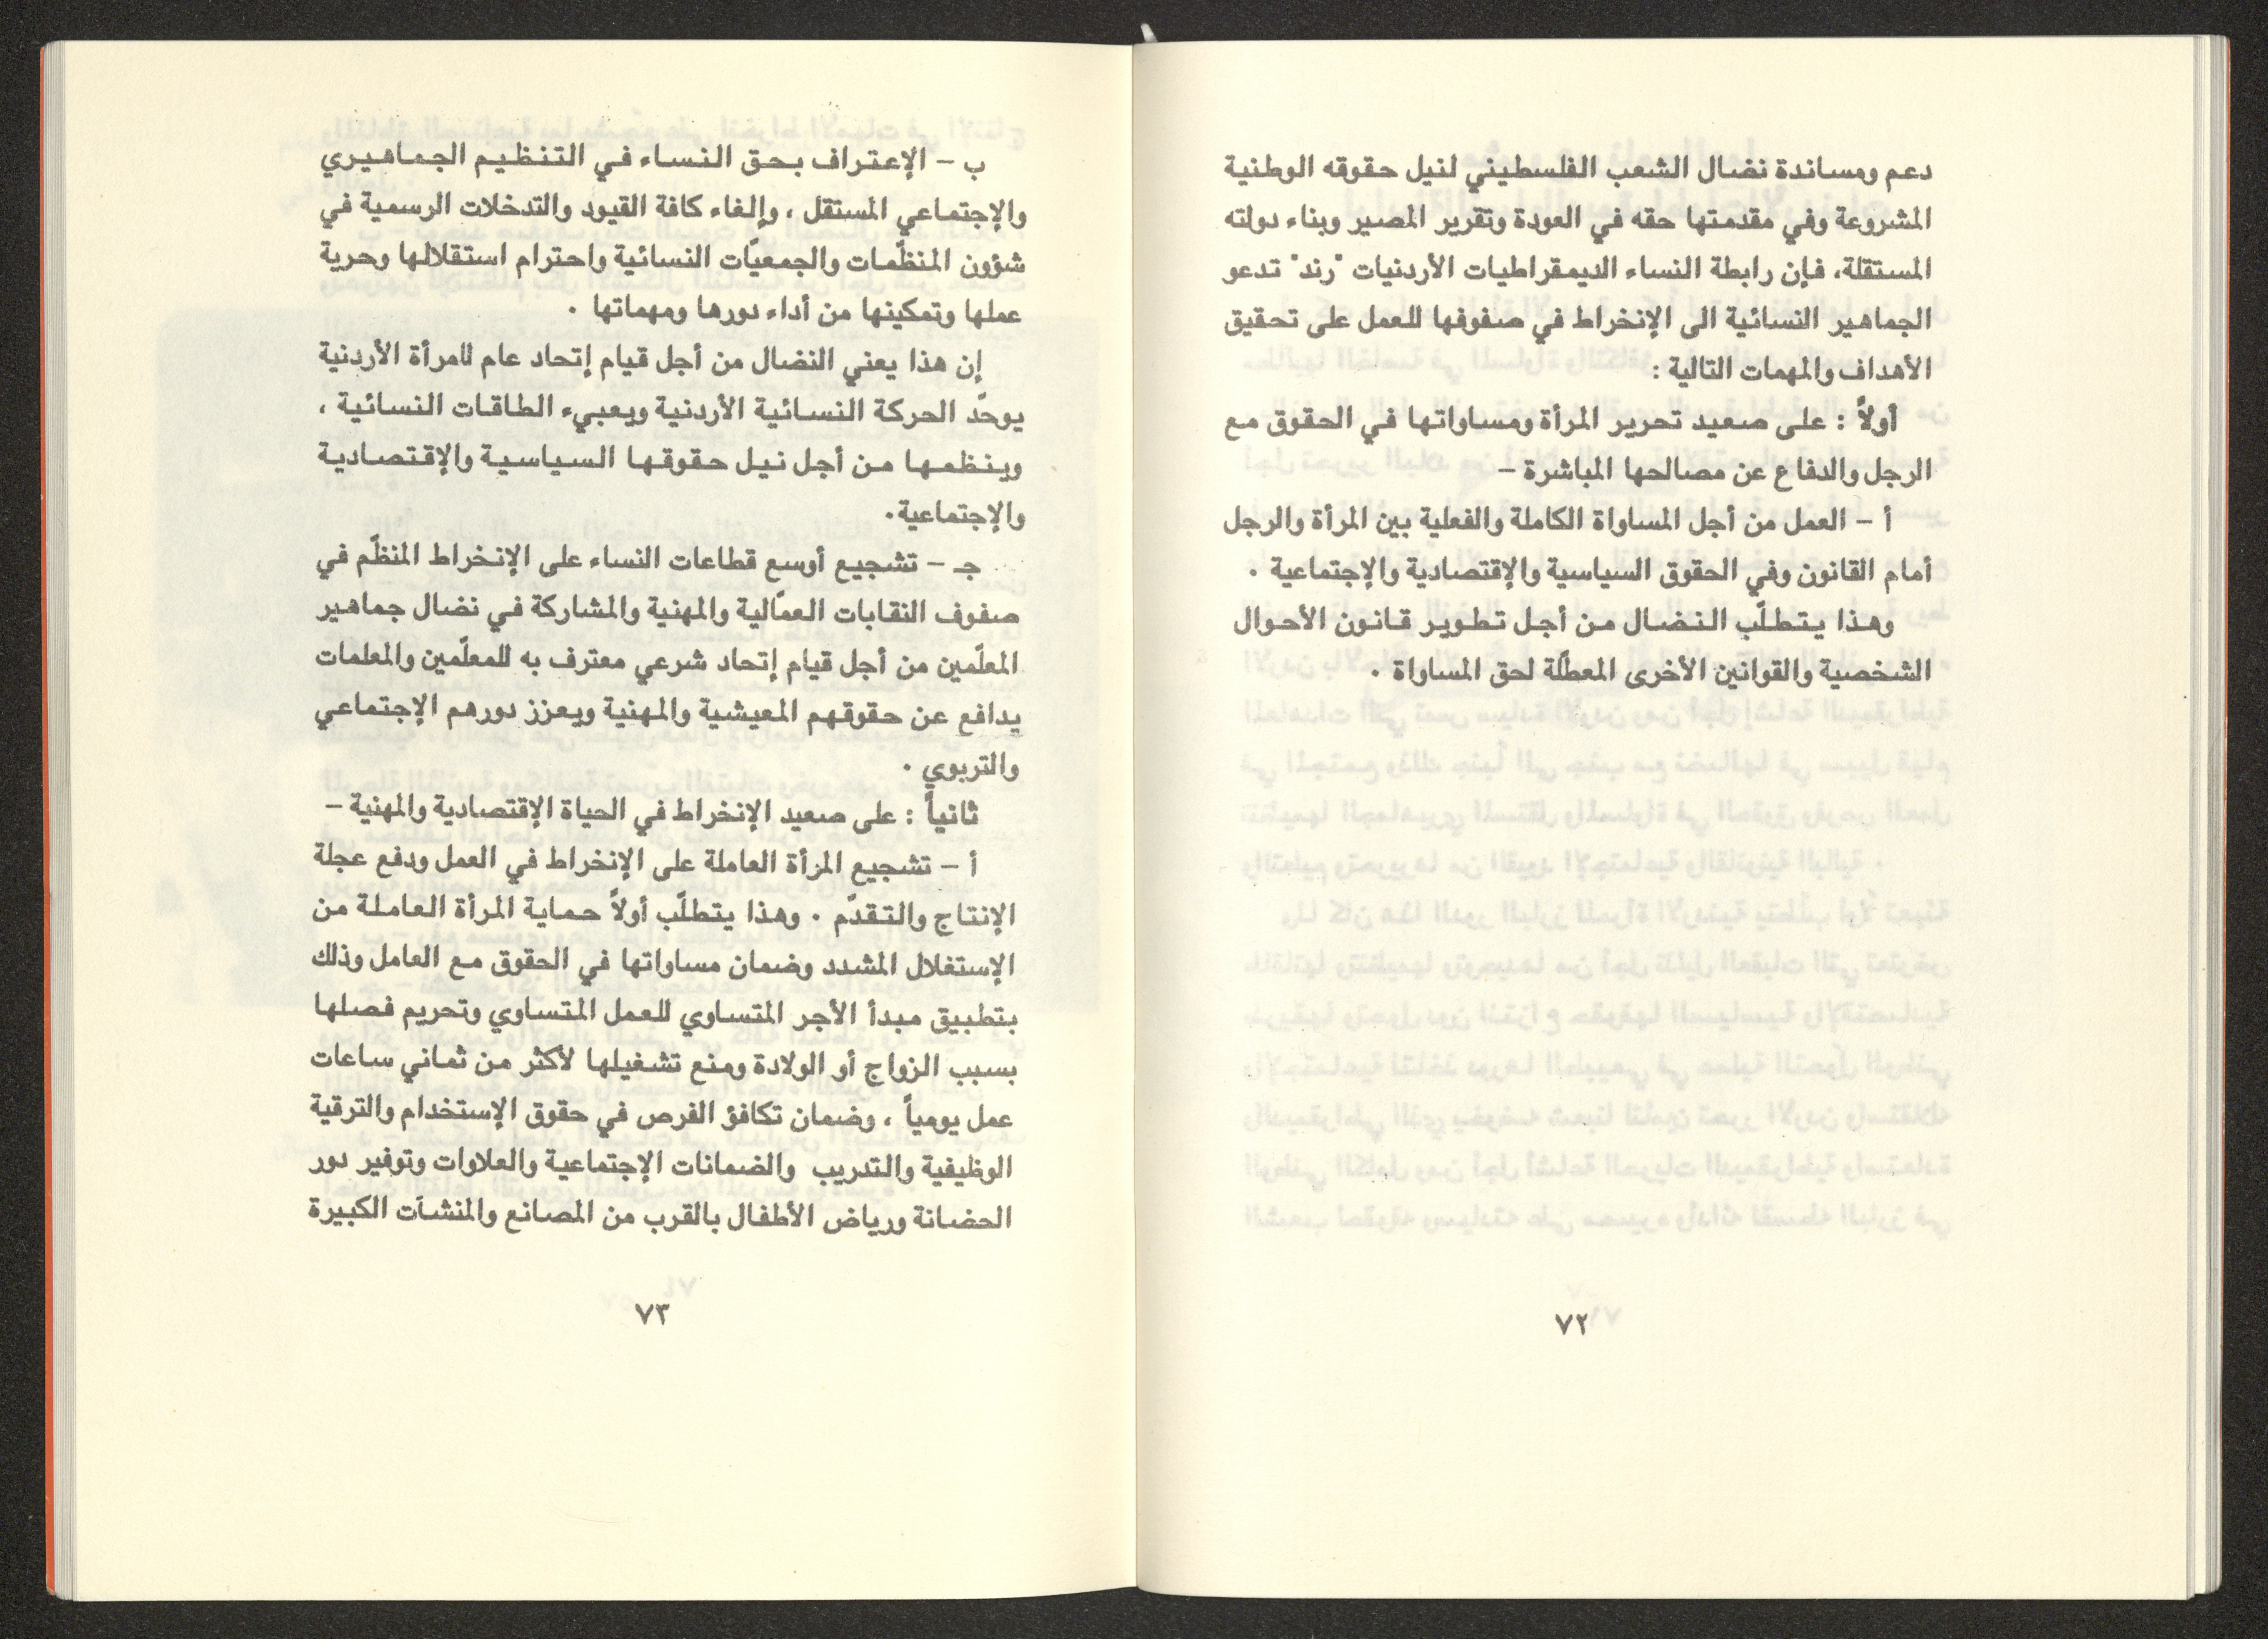 دعم ومساندة نضال الشعب الفلسطيني لنيل حقوقه الوطنية
المشروعة وفي مقدمتها حقه في العودة وتقرير المصير وبناء دولته
المستقلة، فإن رابطة النساء الديمقراطيات الأردنيات "رند" تدعو
الجماهير النسائية الى الإنخراط في صفوفها للعمل على تحقيق
الأهداف والمهمات التالية :
أولاً : على صعيد تحرير المرأة ومساواتها في الحقوق مع
الرجل والدفاع عن مصالحها المباشرة –
أ – العمل من أجل المساواة الكاملة والفعلية بين المرأة والرجل
أمام القانون وفي الحقوق السياسية والإقتصادية والإجتماعية .
وهذا يتطلّب النضال من أجل تطوير قانون الأحوال
الشخصية والقوانين الأخرى المعطّلة لحق المساواة .
٧٢
ب – الإعتراف بحق النساء في التنظيم الجماهيري
والإجتماعي المستقل ، وإلغاء كافة القيود والتدخلات الرسمية في
شؤون المنظّمات والجمعيّات النسائية واحترام استقلالها وحرية
عملها وتمكينها من أداء دورها ومهماتها .
إن هذا يعني النضال من أجل قيام إتحاد عام للمرأة الأردنية
يوحّد الحركة النسائية الأردنية ويعبيء الطاقات النسائية ،
وينظمها من أجل نيل حقوقها السياسية والإقتصادية
والإجتماعية.
جـ – تشجيع أوسع قطاعات النساء على الإنخراط المنظّم في
صفوف النقابات العمّالية والمهنية والمشاركة في نضال جماهير
المعلّمين من أجل قيام إتحاد شرعي معترف به للمعلّمين والمعلمات
يدافع عن حقوقهم المعيشية والمهنية ويعزز دورهم الإجتماعي
والتربوي .
ثانياً : على صعيد الإنخراط في الحياة الإقتصادية والمهنية –
أ – تشجيع المرأة العاملة على الإنخراط في العمل ودفع عجلة
الإنتاج والتقدّم . وهذا يتطلّب أولاً حماية المرأة العاملة من
الإستغلال المشدد وضمان مساواتها في الحقوق مع العامل وذلك
بتطبيق مبدأ الأجر المتساوي للعمل المتساوي وتحريم فصلها
بسبب الزواج أو الولادة ومنع تشغيلها لأكثر من ثماني ساعات
عمل يومياً ، وضمان تكافؤ الفرص في حقوق الإستخدام والترقية
الوظيفية والتدريب والضمانات الإجتماعية والعلاوات وتوفير دور
الحضانة ورياض الأطفال بالقرب من المصانع والمنشآت الكبيرة
٧٣